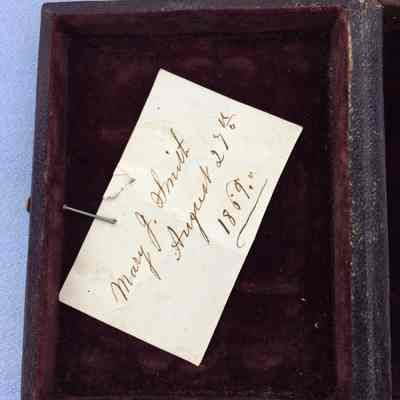 Mary J. Smith
August 27th
1869.